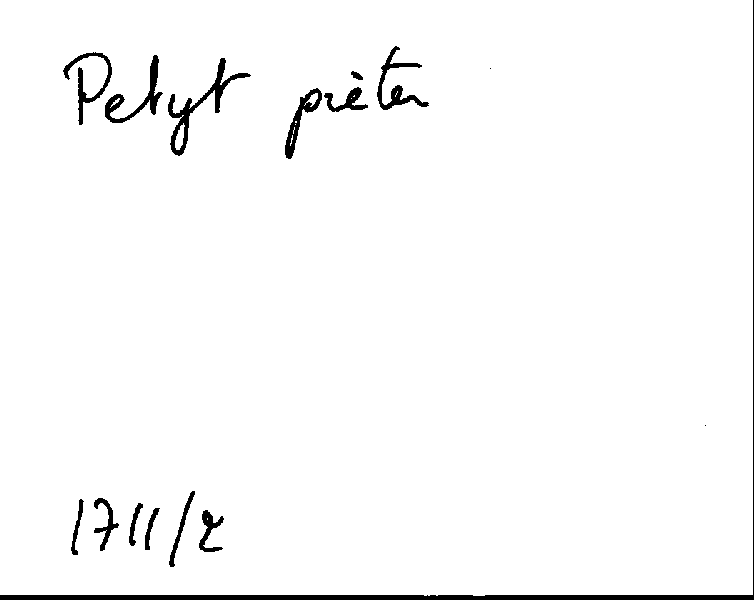 Petyt prèter
1711/2